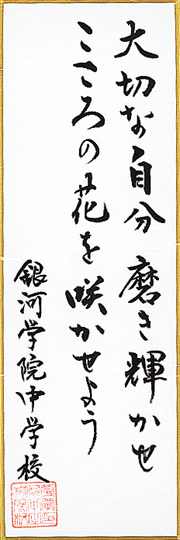 大切な自分 磨き輝かせ
こころの花を咲かせよう
銀河学院中学校